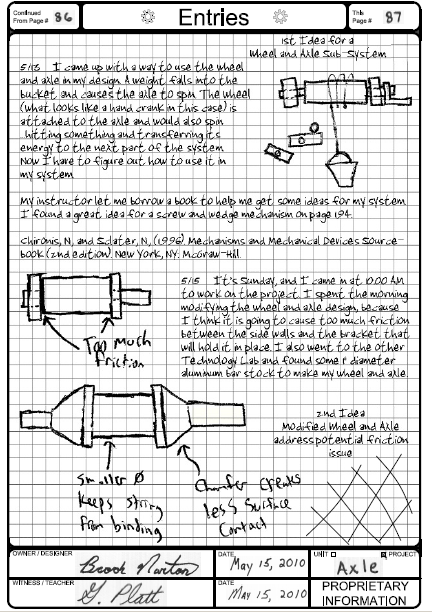 Continued
From Page # 86
Entries
This
Page # 87
1st Idea for a
Wheel and Axle Sub-System
5/13 I came up with a way to use the wheel
and axle in my design. A weight falls into the
bucket and causes the axle to spin. The wheel
(what looks like a hand crank in this case) is
attached to the axle and would also spin
hitting something and transferring its
energy to the next part of the system.
Now I have to figure out how to use it in
my system.
My instructor let me borrow a book to help me get some ideas for my system.
I found a great idea for a screw and wedge mechanism on page 194.
Chironis, N, and Sclater, N, (1996). Mechanisms and Mechanical Devices Source-
book (2nd edition). New York, NY: McGraw-Hill.
5/15 It's Sunday, and I came in at 10:00 AM
to work on the project. I spent the morning
modifying the wheel and axle design, because
I think it is going to cause too much friction
between the side walls and the bracket that
will hold it in place. I also went to the other
Technology Lab and found some 1" diameter
aluminum bar stock to make my wheel and axle.
Too much
friction
2nd Idea
Modified Wheel and Axle
address potential friction
issue
Smaller Ø
Keeps string
from binding
Chamfer creates
less surface
contact
OWNER / DESIGNER
Brook Norton
DATE
May 15, 2010
UNIT
PROJECT
Axle
WITNESS / TEACHER
G. Platt
DATE
May 15, 2010
PROPRIETARY
INFORMATION